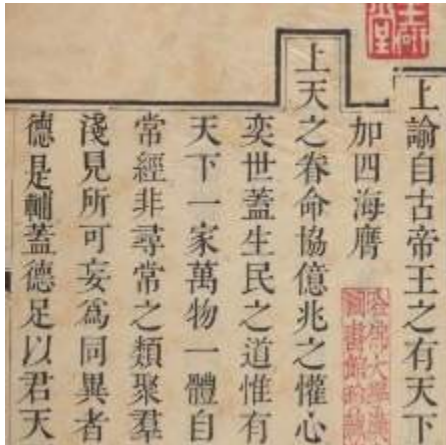 上諭自古帝王之有天下
加四海膺
上天之眷命協億兆之懽心
奕世蓋生民之道惟有
天下一家萬物一體自
常經非尋常之類聚羣
淺見所可妄爲同異者
德是輔蓋德足以君天
哈佛大學漢
圖書館珍藏